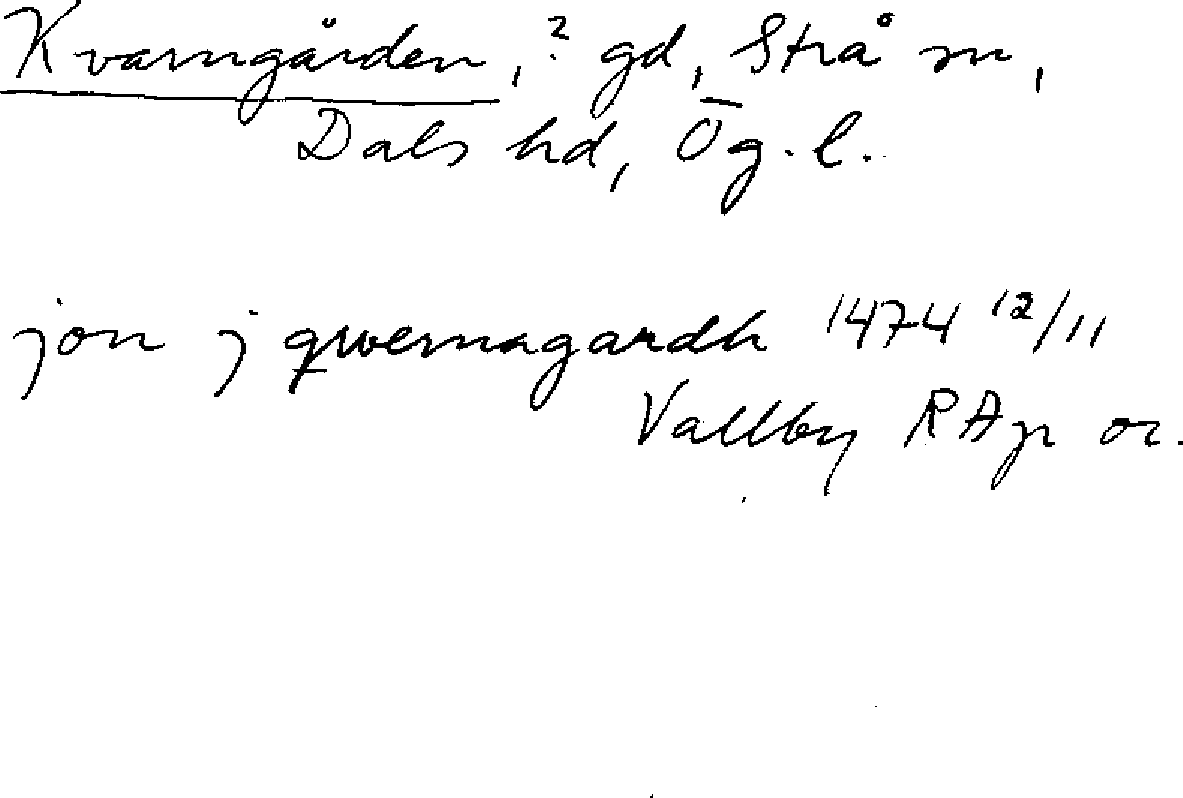 Kvarngården, ? gd, Strå sn,
Dals hd, Ög. l.
jon j qwernagardh 1474 12/11
Vallby RAp or.